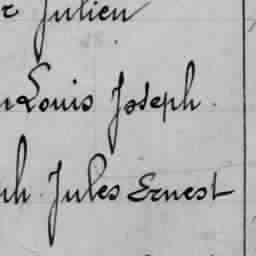 Julien
Louis Joseph
Jules Ernest